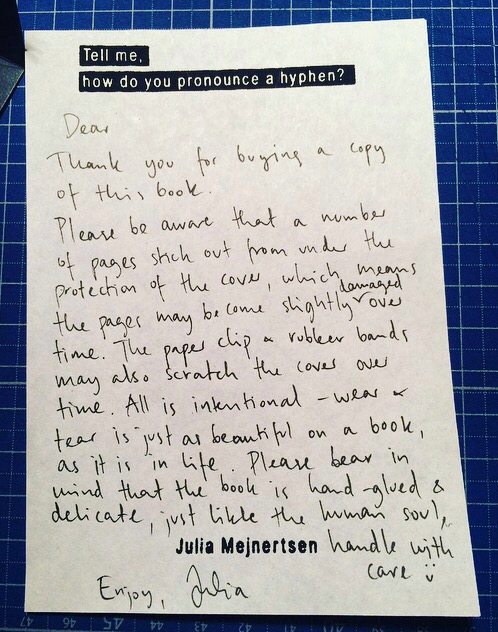 Tell me,
how do you pronounce a hyphen?
Dear
Thank you for buying a copy
of this book.
Please be aware that a number
of pages stick out from under the
protection of the cover, which means
the pages may become slightly damaged over
time. The paper clip & rubber bands
may also scratch the cover over
time. All is intentional - wear &
tear is just as beautiful on a book,
as it is in life. Please bear in
mind that the book is hand-glued &
delicate, just like the human soul,
Julia Mejnertsen handle with
care
Enjoy, Julia
47 46 45 44 43 42 41 40 39